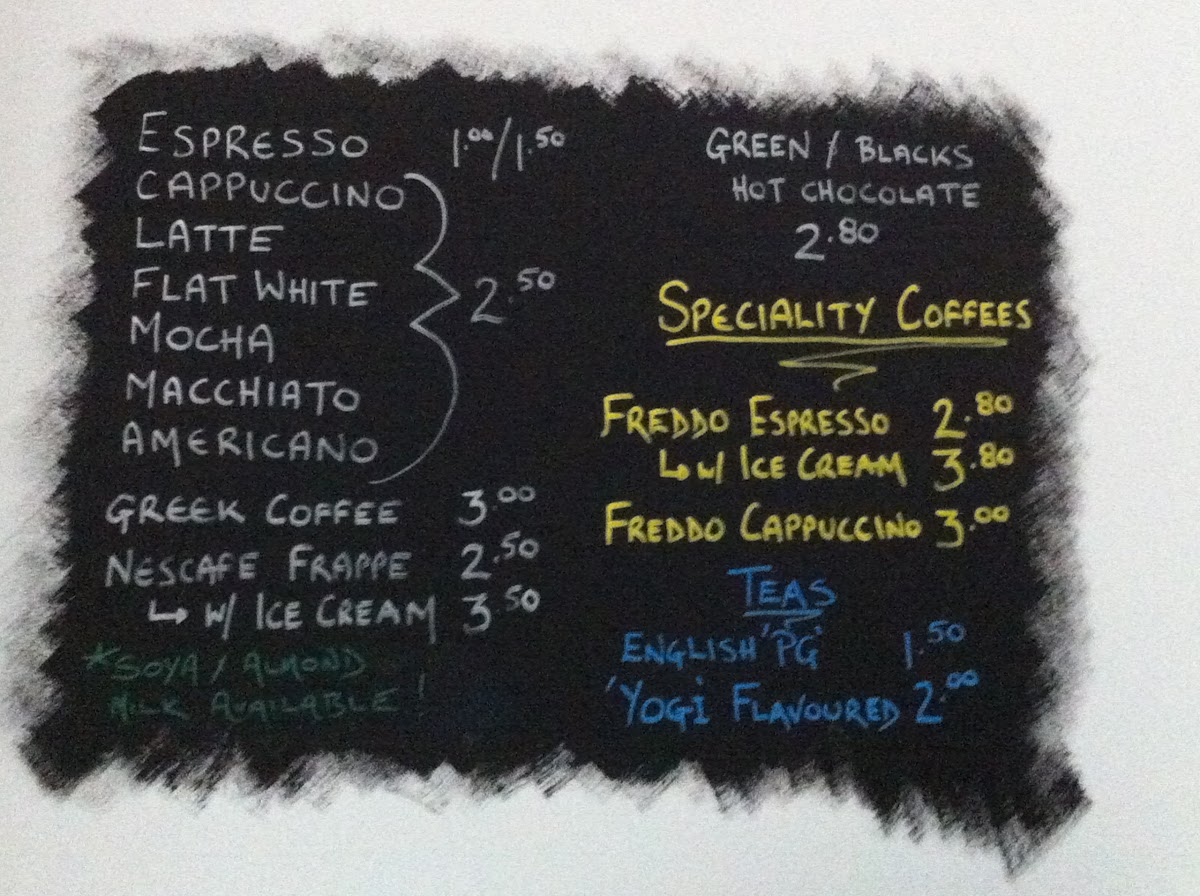 ESPRESSO 1.00/1.50
CAPPUCCINO
LATTE
FLAT WHITE 2.50
MOCHA
MACCHIATO
AMERICANO
GREEK COFFEE 3.00
NESCAFE FRAPPE 2.50
↳ W/ ICE CREAM 3.50
*SOYA / ALMOND
MILK AVAILABLE!
GREEN / BLACKS
HOT CHOCOLATE
2.80
SPECIALITY COFFEES
FREDDO ESPRESSO 2.80
↳ W/ ICE CREAM 3.80
FREDDO CAPPUCCINO 3.00
TEAS
ENGLISH 'PG' 1.50
'YOGI' FLAVOURED 2.00